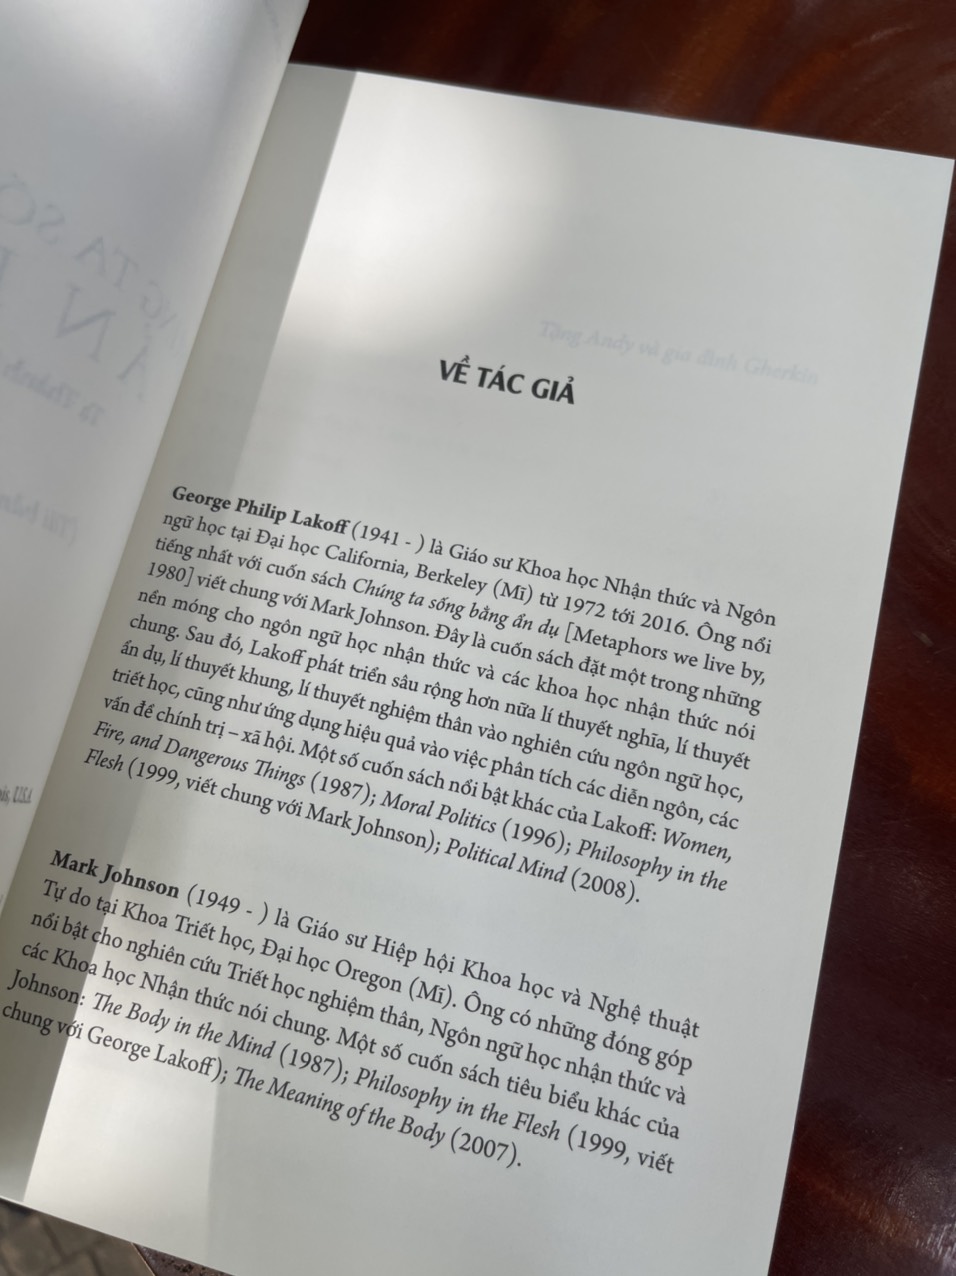 Tặng Andy và gia đình Gherkin
VỀ TÁC GIẢ
George Philip Lakoff (1941 - ) là Giáo sư Khoa học Nhận thức và Ngôn
ngữ học tại Đại học California, Berkeley (Mĩ) từ 1972 tới 2016. Ông nổi
tiếng nhất với cuốn sách Chúng ta sống bằng ẩn dụ [Metaphors we live by,
1980] viết chung với Mark Johnson. Đây là cuốn sách đặt một trong những
nền móng cho ngôn ngữ học nhận thức và các khoa học nhận thức nói
chung. Sau đó, Lakoff phát triển sâu rộng hơn nữa lí thuyết nghĩa, lí thuyết
ẩn dụ, lí thuyết khung, lí thuyết nghiệm thân vào nghiên cứu ngôn ngữ học,
triết học, cũng như ứng dụng hiệu quả vào việc phân tích các diễn ngôn, các
vấn đề chính trị – xã hội. Một số cuốn sách nổi bật khác của Lakoff: Women,
Fire, and Dangerous Things (1987); Moral Politics (1996); Philosophy in the
Flesh (1999, viết chung với Mark Johnson); Political Mind (2008).
Mark Johnson (1949 - ) là Giáo sư Hiệp hội Khoa học và Nghệ thuật
Tự do tại Khoa Triết học, Đại học Oregon (Mĩ). Ông có những đóng góp
nổi bật cho nghiên cứu Triết học nghiệm thân, Ngôn ngữ học nhận thức và
các Khoa học Nhận thức nói chung. Một số cuốn sách tiêu biểu khác của
Johnson: The Body in the Mind (1987); Philosophy in the Flesh (1999, viết
chung với George Lakoff); The Meaning of the Body (2007).
USA